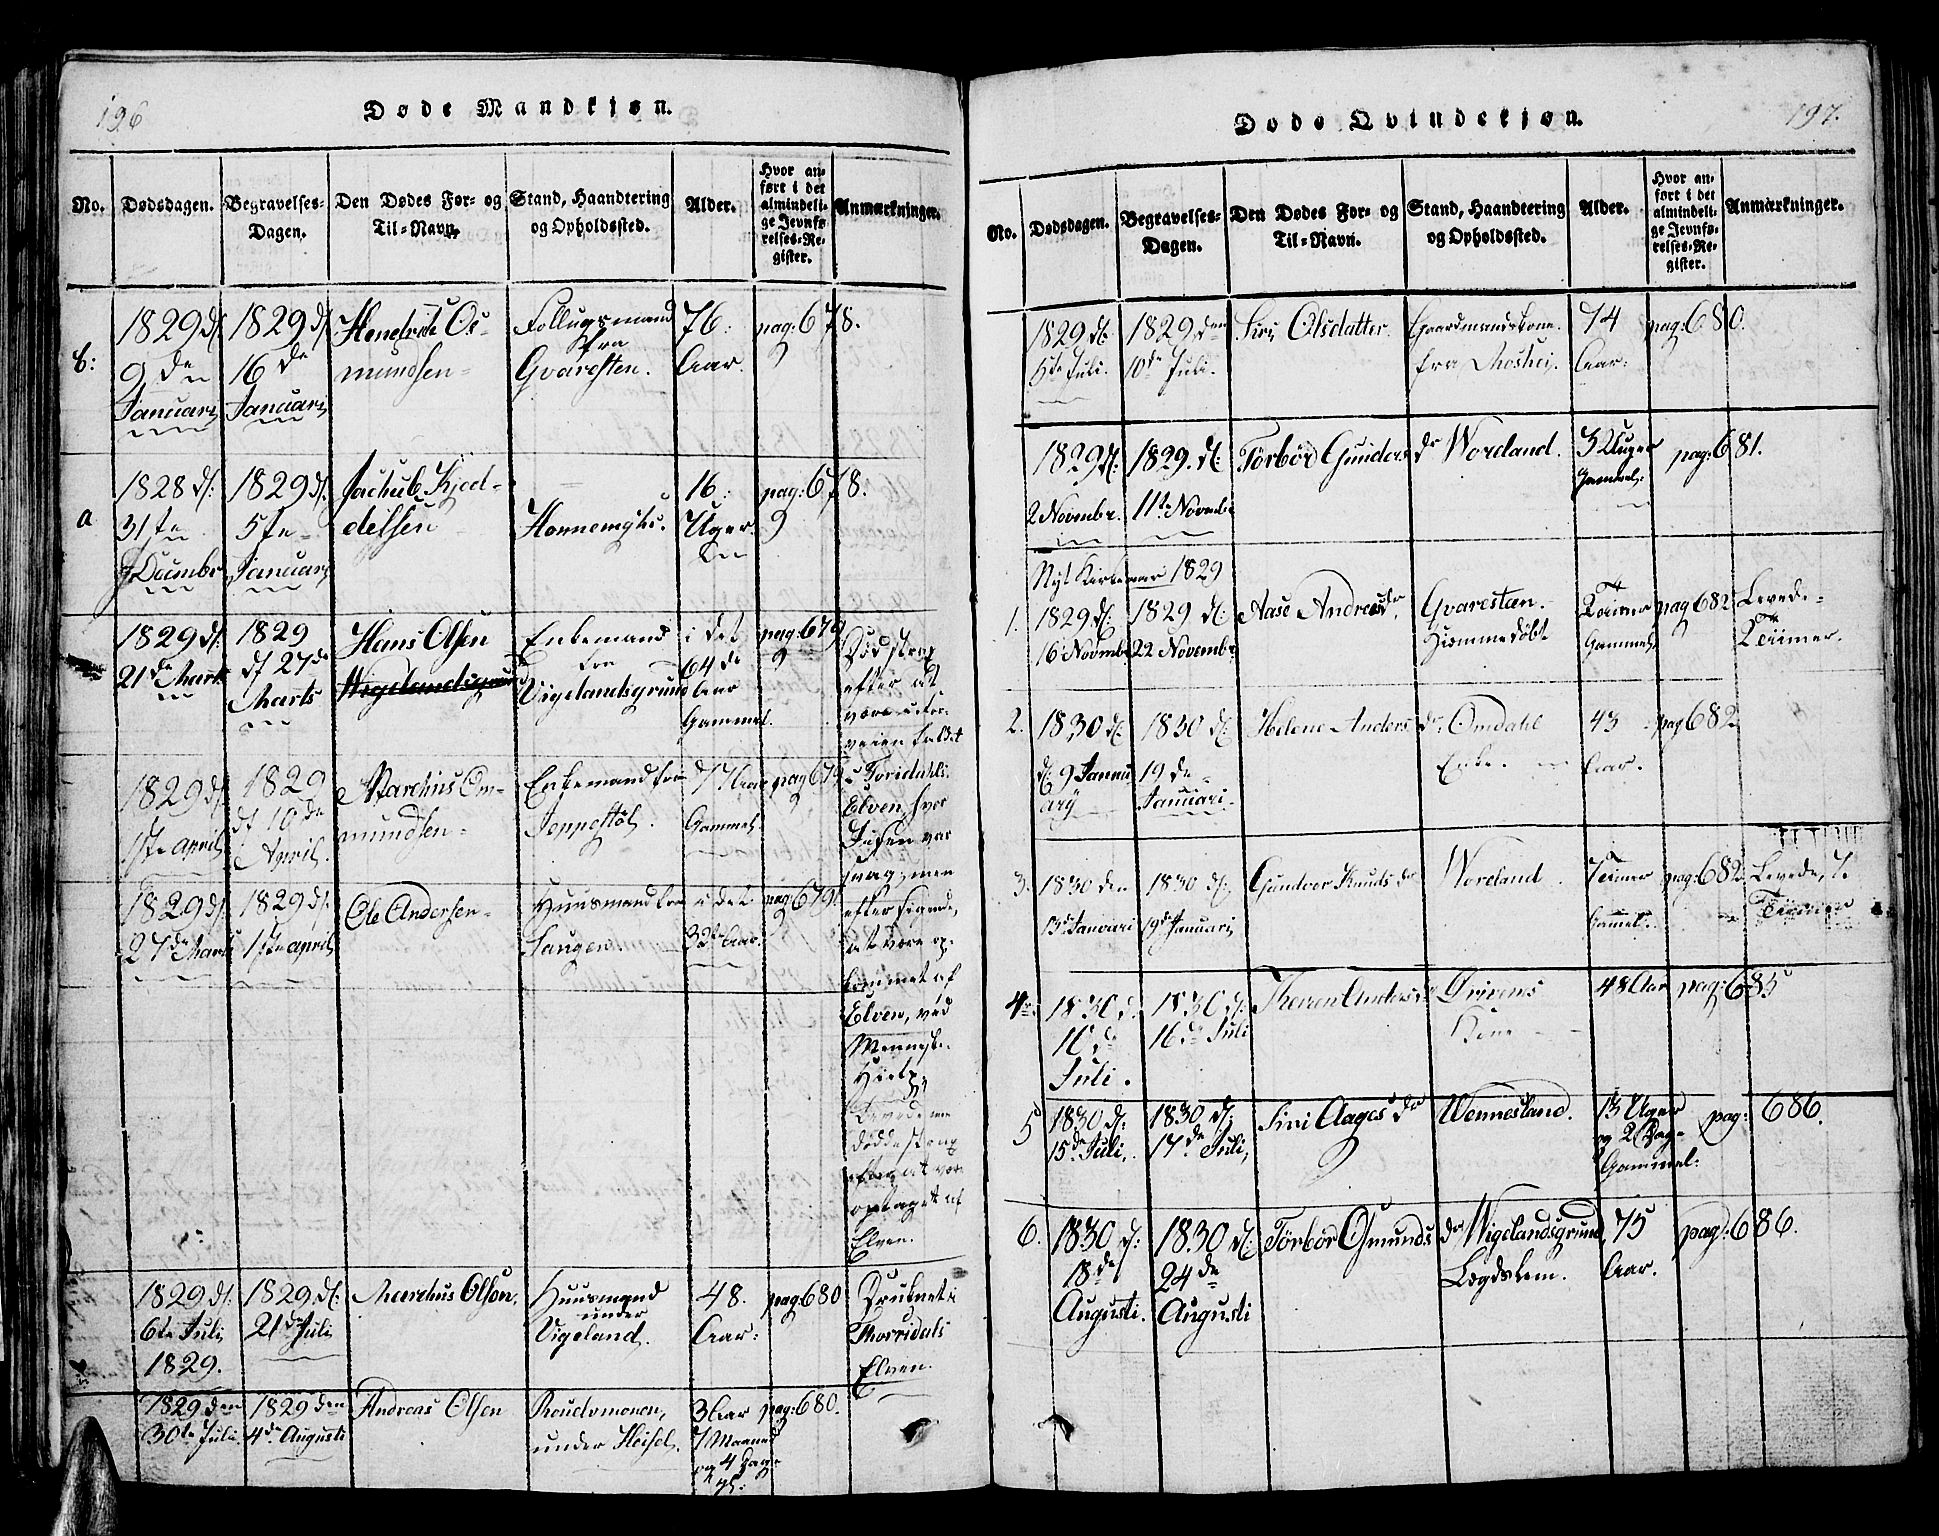 196
Døde Mandkiøn.
No.
Dødsdagen.
Begravelses-
Dagen.
Den Dødes For- og
Til-Navn.
Stand, Haandtering
og Opholdssted.
Alder.
Hvor an-
ført i det
almindeli-
ge Jevnfø-
relses-Re-
gister.
Anmærkninger.
b:
1829 d:
9 den
Januari
1829 d:
16 de
Januari
Hendrik Os-
mundsen
Follugsmand
fra
Gvaresten.
76:
Aar.
pag: 678.
a
1828 d:
31te
Decembr
1829 d:
5te
Januari
Jachub Kjed-
delsen
Honnemyhr.
16:
Uger.
pag: 678.
1829 d:
21de Marts
1829
d: 27de
Marts
Hans Olsen
Wigelandsgrund
Enkemand
fra
Vigelandsgrund
i det
64 de
Aar
Gammel.
pag: 679
Død strax
efter at
være
veien faldet
i Toridahls
Elven, hvor
Jisen var
svag, men
efter sigende,
at være op-
kommet af
Elven, ved
Menneske
Hielp,
Levede men
døde strax
efter at være
optaget af
Elven.
1829 d:
1ste April
1829
d: 10 de
April.
Marchus Om-
mundsen
Enkemand fra
Jeppestøl.
77 Aar
Gammel.
pag 679
1829 d:
27de Marts
1829 d:
1ste April
Ole Andersen
Huusmand fra
Haugen
i det
32te Aar.
pag: 679
1829 d:
6te Juli
1829.
1829. d:
21de Juli
Marchus Olsen.
Huusmand
under
Vigeland.
48.
Aar:
pag: 680
Druknet i
Thorridals
Elven.
1829 den
30te Juli
1829 den
4de Augusti
Andreas Olsen
under Heisel.
3 Aar
7 Maaned
og 4 Dage
pag: 680.
197.
Døde Qvindekiøn.
No.
Dødsdagen.
Begravelses-
Dagen.
Den Dødes For- og
Til-Navn.
Stand, Haandtering
og Opholdssted.
Alder.
Hvor an-
ført i det
almindeli-
ge Jevnfø-
relses-Re-
gister.
Anmærkninger.
1829 d:
5te Juli.
1829 den
10de Juli.
Siri Olsdatter.
Gaardmandskone.
fra Moshei.
74
Aar:
pag: 680.
1829 d:
2 Novembr.
1829. d:
11te Novembr
Torbør Gunders dr
Woreland.
3 Uger
Gammel.
pag: 681.
Nyt Kirkeaar 1829
1.
1829 d:
16 Novembr
1829 d:
22 Novembr
Aase Andreas dr.
Gvaresten.
Hiemmedøbt
Tiimer
Gammel
pag 682
Levede
Tiimer.
2.
1830 d:
d: 9 Janu
ary
1830 d:
19 de
Januari.
Helene Anders dr
Omdahl
Enke.
43
Aar.
pag 682
3.
1830 den
13de Januari
1830 d:
19de Januari
Gundvor Knuds dr
Woreland
7 Tiimer
Gammel.
pag: 682
Levede, 7
Tiimer
4
1830 d:
10 de
Juli.
1830 d:
16 de Juli
Therren Anders dr
Drivenes
48 Aar
pag: 685
5
1830 d:
15de Juli,
1830 d:
17de Juli,
Siri Aages dr
Wennesland.
13 Uger
og 2 Dage
Gammel:
pag: 686.
6.
1830 d:
18de
Augusti.
1830 d:
24 de
Augusti
Torbør Osmunds dr
Wigelandsgrund
Lægdslem.
75
Aar.
pag: 686.